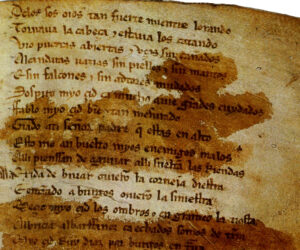 Delos sos oios tan fuerte mientre lorando
Tornaua la cabeça y estaua los catando
Vio puertas abiertas y vços sin cañados
Alcandaras vazias sin pielles y sin mantos
E sin falcones y sin adtores mudados
Sospiro myo çid ca mucho auie grandes cuydados
Fablo myo çid bien y tan mesurado
Grado ati señor padre q estas en alto
Esto me an buelto myos enemigos malos
Alli pienssan de aguijar alli sueltan las Riendas
exida de biuar ouieron la corneja diestra
E entrando a burgos ouieron la siniestra
Meçio myo çid los ombros y engrameo la tiesta
Albricia albarffanez ca echados somos de tierra
çid Ruy diaz por burgos